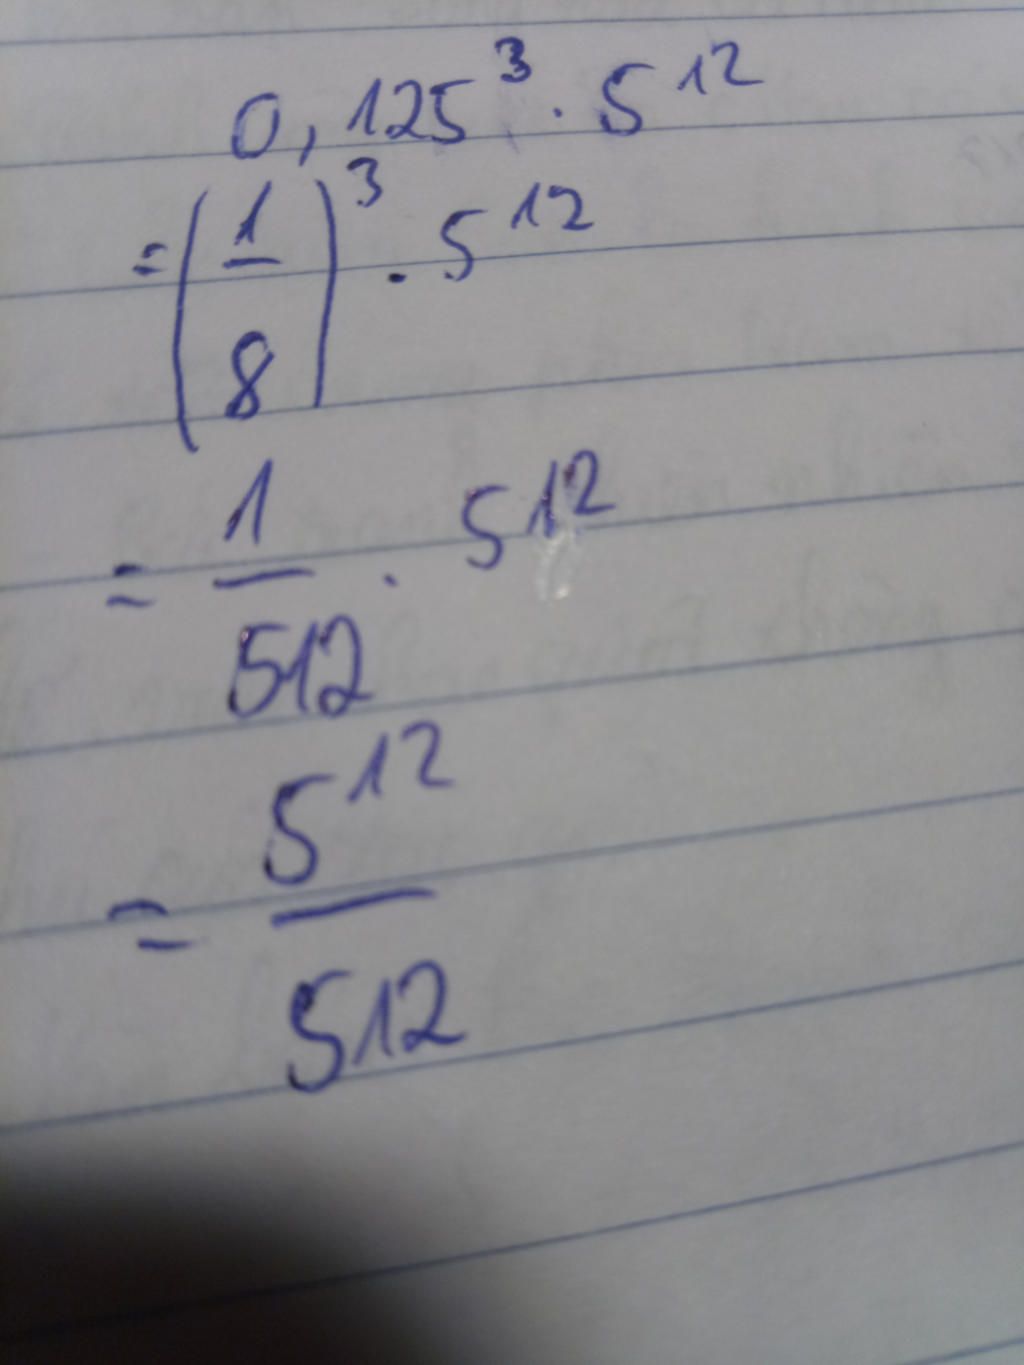 0,125³ · 5¹²
= (1/8)³ · 5¹²
= 1/512 · 5¹²
= 5¹²/512